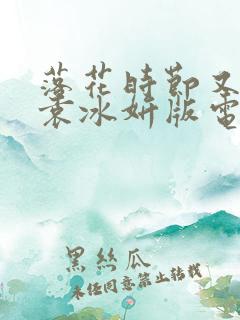 落花時節又
袁冰妍版電
黑絲瓜
未经同意禁止转载